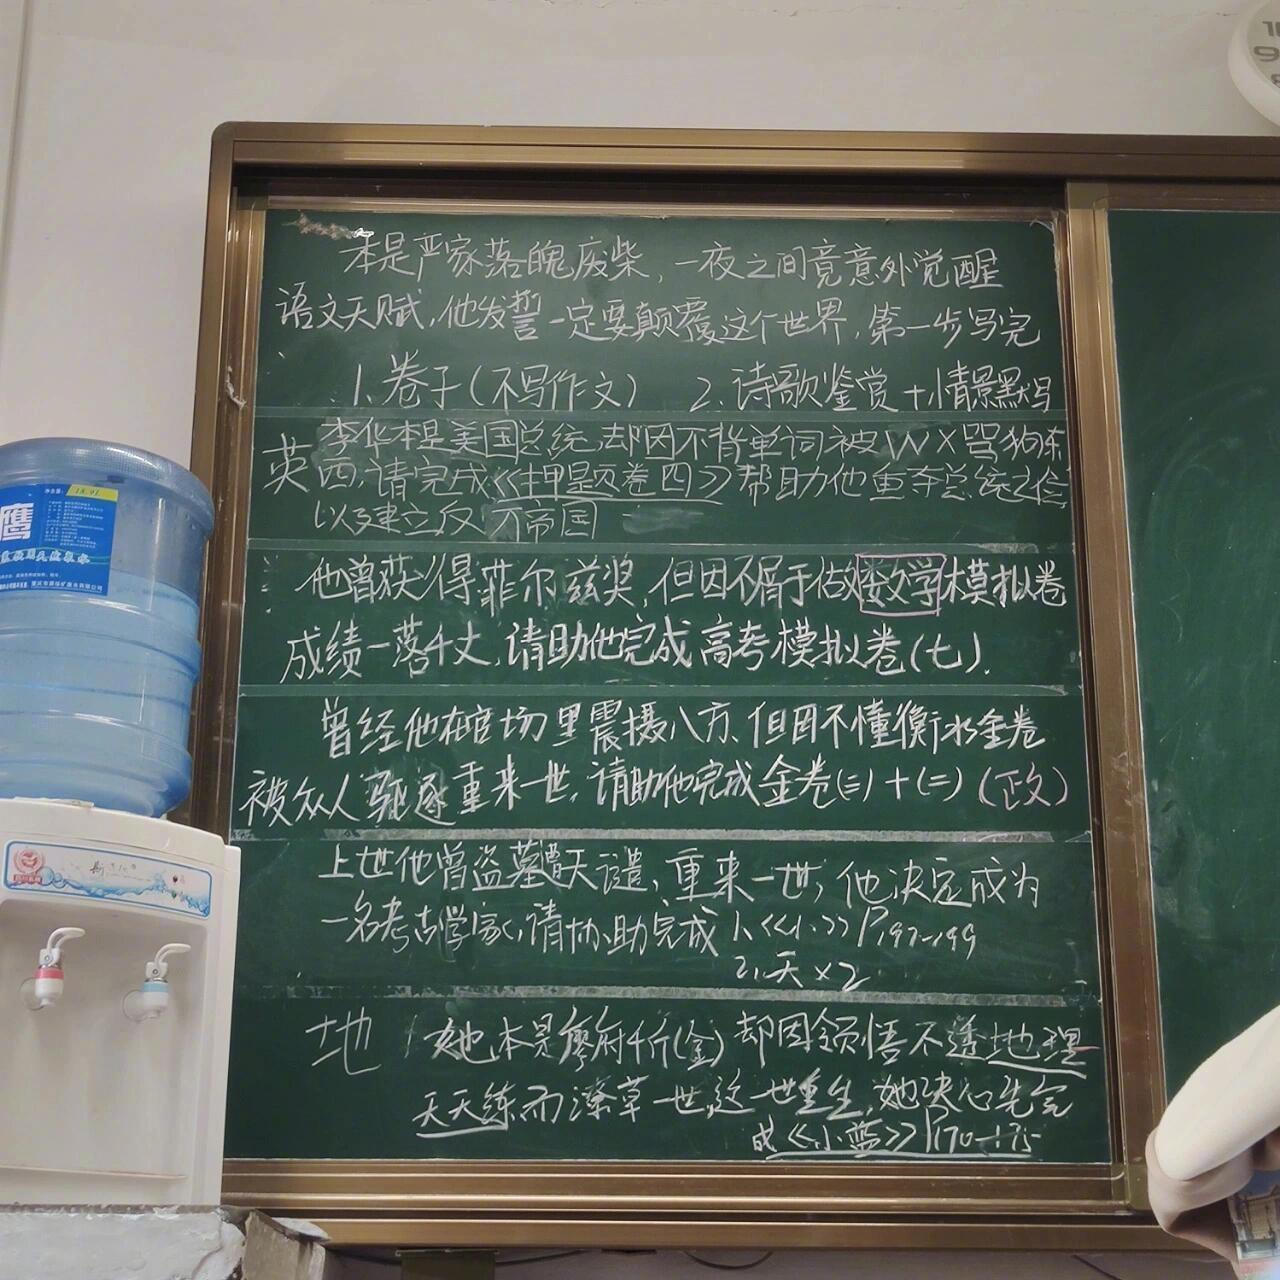 本是严家落魄废柴，一夜之间竟意外觉醒
语文天赋，他发誓一定要颠覆这个世界，第一步写完
1.卷子（不写作文） 2.诗歌鉴赏+小情景默写
英 李华本是美国总统，却因不背单词被WX骂狗东
四，请完成《押题卷四》帮助他重夺总统之位
以及建立反 万帝国
他曾获得菲尔兹奖，但因不屑于做数学模拟卷
成绩一落千丈，请助他完成高考模拟卷（七）.
曾经他在官场里震摄八方，但因不懂衡水金卷
被众人驱逐重来一世，请助他完成金卷(三)+(二)(政)
上世他曾盗墓遭天谴，重来一世，他决定成为
一名考古学家，请协助完成 1.《小》P197-199
2.天×2
地 她本是廖府千斤(金)却因领悟不透地理
天天练而潦草一世，这一世重生，她决心先完
成《小蓝》P170-175
鹰
10
9
8